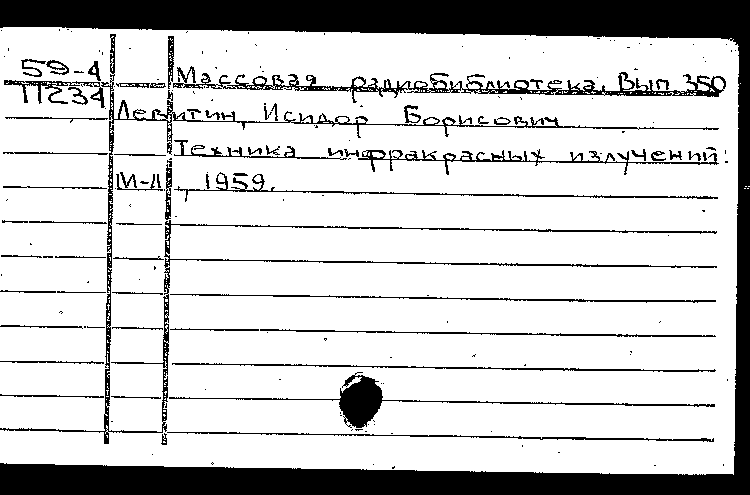 59-4 Массовая радиобиблиотека. Вып. 350
11234
Левитин, Исидор Борисович
Техника инфракрасных излучений.
М-Л, 1959.